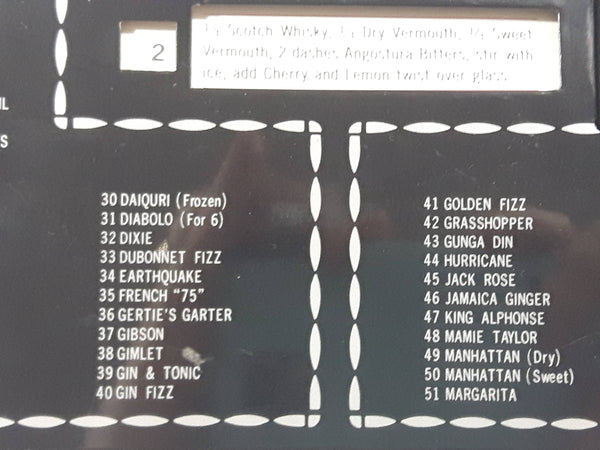 2
Scotch Whisky, Dry Vermouth, Sweet
Vermouth, 2 dashes Angostura Bitters, stir with
ice, add Cherry and Lemon twist over glass
30 DAIQURI (Frozen)
31 DIABOLO (For 6)
32 DIXIE
33 DUBONNET FIZZ
34 EARTHQUAKE
35 FRENCH "75"
36 GERTIE'S GARTER
37 GIBSON
38 GIMLET
39 GIN & TONIC
40 GIN FIZZ
41 GOLDEN FIZZ
42 GRASSHOPPER
43 GUNGA DIN
44 HURRICANE
45 JACK ROSE
46 JAMAICA GINGER
47 KING ALPHONSE
48 MAMIE TAYLOR
49 MANHATTAN (Dry)
50 MANHATTAN (Sweet)
51 MARGARITA